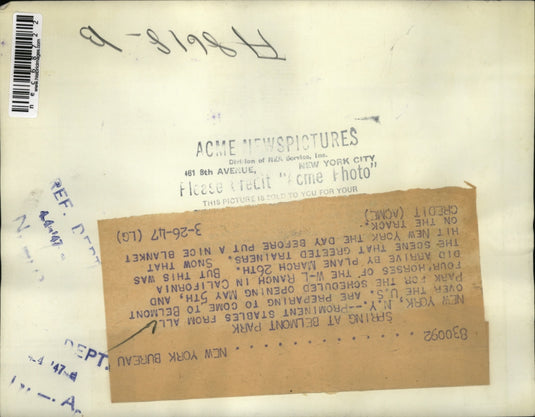 A8618-B
ACME NEWSPICTURES
Division of NEA Service, Inc.
461 8th AVENUE, NEW YORK CITY
Please Credit "Acme Photo"
THIS PICTURE IS SOLD TO YOU FOR YOUR
REF. DEPT.
4-4-'47
DEPT.
4-4 '47
830092 NEW YORK BUREAU
SPRING AT BELMONT PARK
NEW YORK, N.Y.--PROMINENT STABLES FROM ALL
OVER THE U.S. ARE PREPARING TO COME TO BELMONT
PARK FOR THE SCHEDULED OPENING MAY 5TH, AND
FOUR HORSES OF THE W-L RANCH IN CALIFORNIA
DID ARRIVE BY PLANE MARCH 26TH. BUT THIS WAS
THE SCENE THAT GREETED TRAINERS. SNOW THAT
HIT NEW YORK THE DAY BEFORE PUT A NICE BLANKET
ON THE TRACK.
CREDIT (ACME) 3-26-47 (LG)